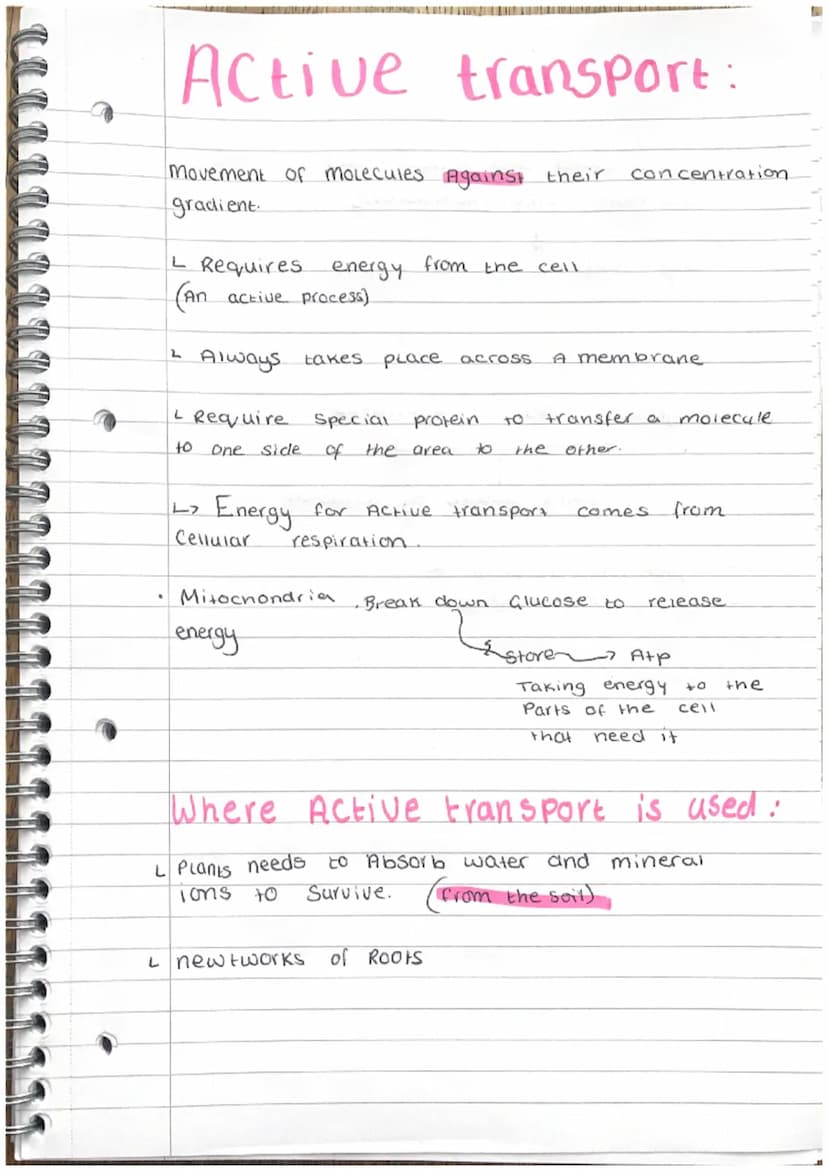 Active transport:
Movement of molecules Against their concentration
gradient.
Requires energy from the cell
(An active process)
Always takes place across A membrane
Require special protein to transfer a molecule
to one side of the area to the other.
Energy for Active transport comes from
Cellular respiration.
• Mitochondria . Break down Glucose to release
energy
Store → Atp
Taking energy to the
Parts of the cell
that need it
Where Active transport is used:
Plants needs to Absorb water and mineral
ions to Survive. (from the soil)
newtworks of Roots